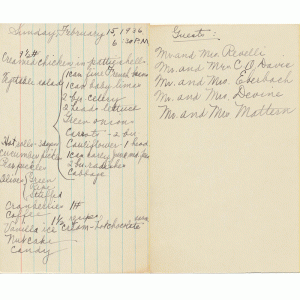 Sunday, February 15, 1936
6:30 P.M.
1 1/2 #
Creamed chicken in patty shells
Vegetable salad
1 can fine French beans
1 can baby limas
2 bu. celery
2 heads lettuce
Green onions
Carrots - 2 bu
Cauliflower - 1 head
2 bu. radishes
Cabbage
Hot rolls
Cucumber
pickles
Olives
Green
Ripe
Stuffed
Cranberries 1#
Coffee
Vanilla ice cream - hot chocolate
Nut cake
Candy
Guests:
Mr and Mrs Revelli
Mr. and Mrs C. O. Davis
Mr. and Mrs Eberbach
Mr. and Mrs Devine
Mr. and Mrs Mattern